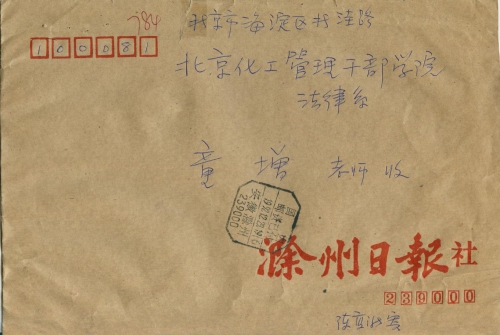 784
100081
北京市海淀区
北京化工管理干部学院
法律系
童增 老师 收
239000
滁州日報社
239000